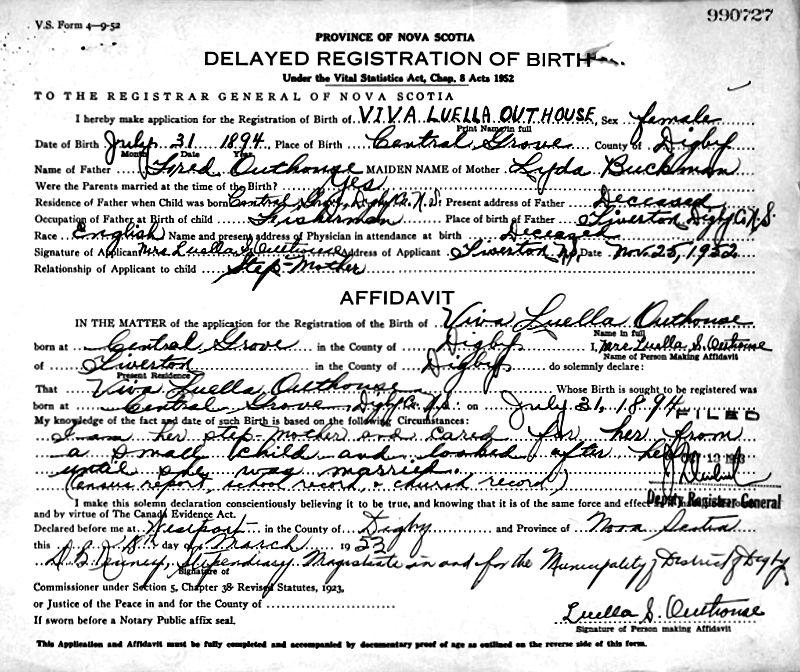 990727
V.S. Form 4—9-52
PROVINCE OF NOVA SCOTIA
DELAYED REGISTRATION OF BIRTH
Under the Vital Statistics Act, Chap. 8 Acts 1952
TO THE REGISTRAR GENERAL OF NOVA SCOTIA
I hereby make application for the Registration of Birth of VIVA LUELLA OUTHOUSE, Sex female
Print Name in full
Date of Birth July 31 1894 Place of Birth Central Grove County of Digby
Month Date Year
Name of Father Fred Outhouse MAIDEN NAME of Mother Lyda Buckman
Were the Parents married at the time of the Birth? Yes
Residence of Father when Child was born Central Grove, Digby Co. N.S. Present address of Father Deceased
Occupation of Father at Birth of child Fisherman Place of birth of Father Tiverton Digby Co. N.S.
Race English Name and present address of Physician in attendance at birth Deceased
Signature of Applicant Mrs Luella S. Outhouse Address of Applicant Tiverton N.S. Date Nov. 25, 1952
Relationship of Applicant to child Step-Mother
AFFIDAVIT
IN THE MATTER of the application for the Registration of the Birth of Viva Luella Outhouse
Name in full
born at Central Grove in the County of Digby I, Mrs Luella S. Outhouse
Name of Person Making Affidavit
of Tiverton in the County of Digby do solemnly declare:
Present Residence
That Viva Luella Outhouse Whose Birth is sought to be registered was
born at Central Grove Digby Co. N.S. on July 31, 1894
FILED
My knowledge of the fact and date of such Birth is based on the following Circumstances:
I am her step-mother and cared for her from
a small child and looked after her
until she was married.
(census report, school record & church record)
Deputy Registrar General
I make this solemn declaration conscientiously believing it to be true, and knowing that it is of the same force and effect
and by virtue of The Canada Evidence Act.
Declared before me at Westport in the County of Digby and Province of Nova Scotia
this day of March 1953
Stipendiary Magistrate in and for the Municipality of District of Digby
Signature of
Commissioner under Section 5, Chapter 38 Revised Statutes, 1923,
or Justice of the Peace in and for the County of
If sworn before a Notary Public affix seal.
Luella S. Outhouse
Signature of Person making Affidavit
This Application and Affidavit must be fully completed and accompanied by documentary proof of age as outlined on the reverse side of this form.